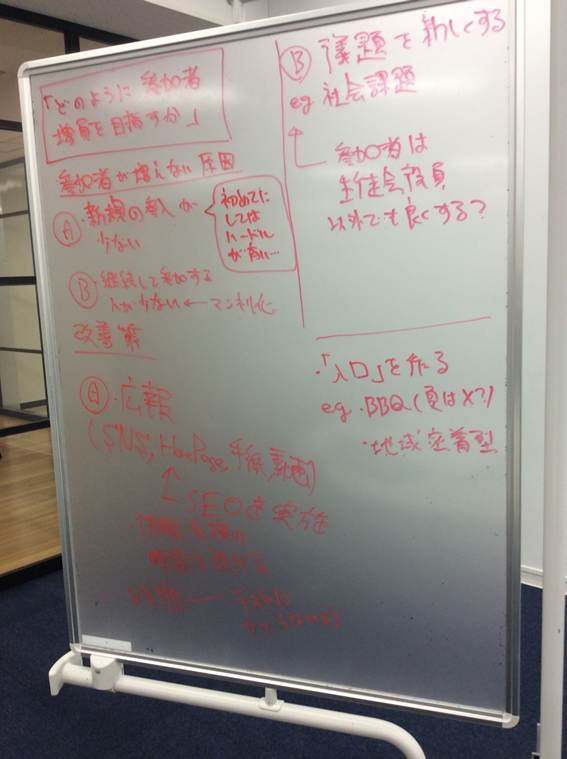 「どのように 参加者
増員を目指すか」
参加者が増えない原因
Ⓐ・新規の参入が
少ない
初めてに
しては
ハードル
が高い…
Ⓑ・継続して参加する
人が少ない ← マンネリ化
改善策
Ⓐ・広報
(SNS, HomePage, 手紙, 動画)
↑ SEOを実施
・
時間を設ける
テスト
Ⓑ 議題を新しくする
eg 社会課題
参加者は
生徒会役員
以外でも良くする?
・「入口」を作る
eg・BBQ(
・地域密着型